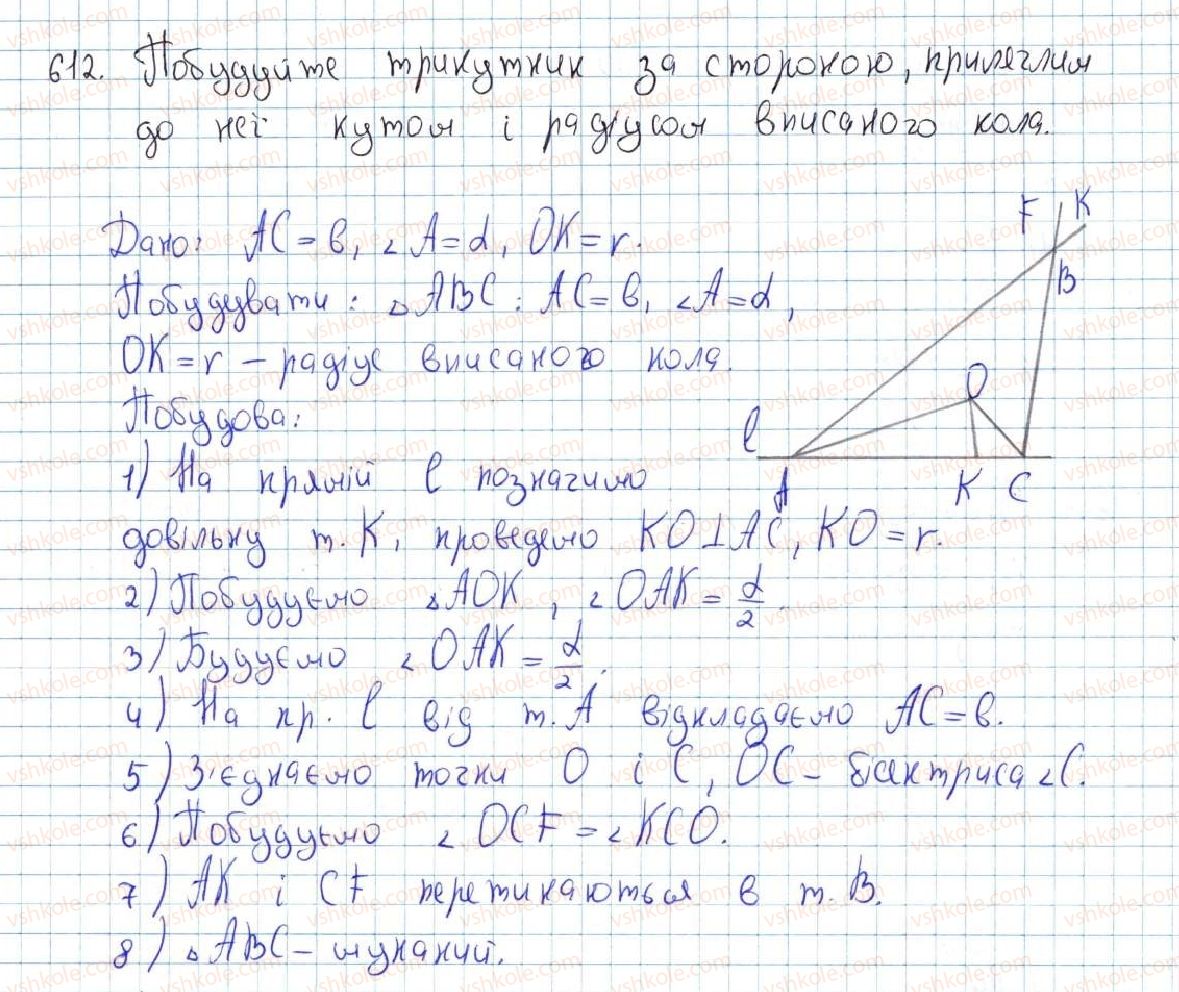 612. Побудуйте трикутник за стороною, прилеглим
до неї кутом і радіусом вписаного кола.
Дано: AC = b, ∠A = α, OK = r.
Побудувати: △ABC: AC = b, ∠A = α,
OK = r – радіус вписаного кола.
Побудова:
1) На прямій l позначимо
довільну т. K, проведемо KO⊥AC, KO = r.
2) Побудуємо △AOK, ∠OAK = α/2.
3) Будуємо ∠OAK = α/2.
4) На пр. l від т. A відкладаємо AC = b.
5) З'єднаємо точки O і C, OC – бісектриса ∠C.
6) Побудуємо ∠OCF = ∠KCO.
7) AK і CF перетинаються в т. B.
8) △ABC – шуканий.
F K
B
O
l
A K C
vshkole.com